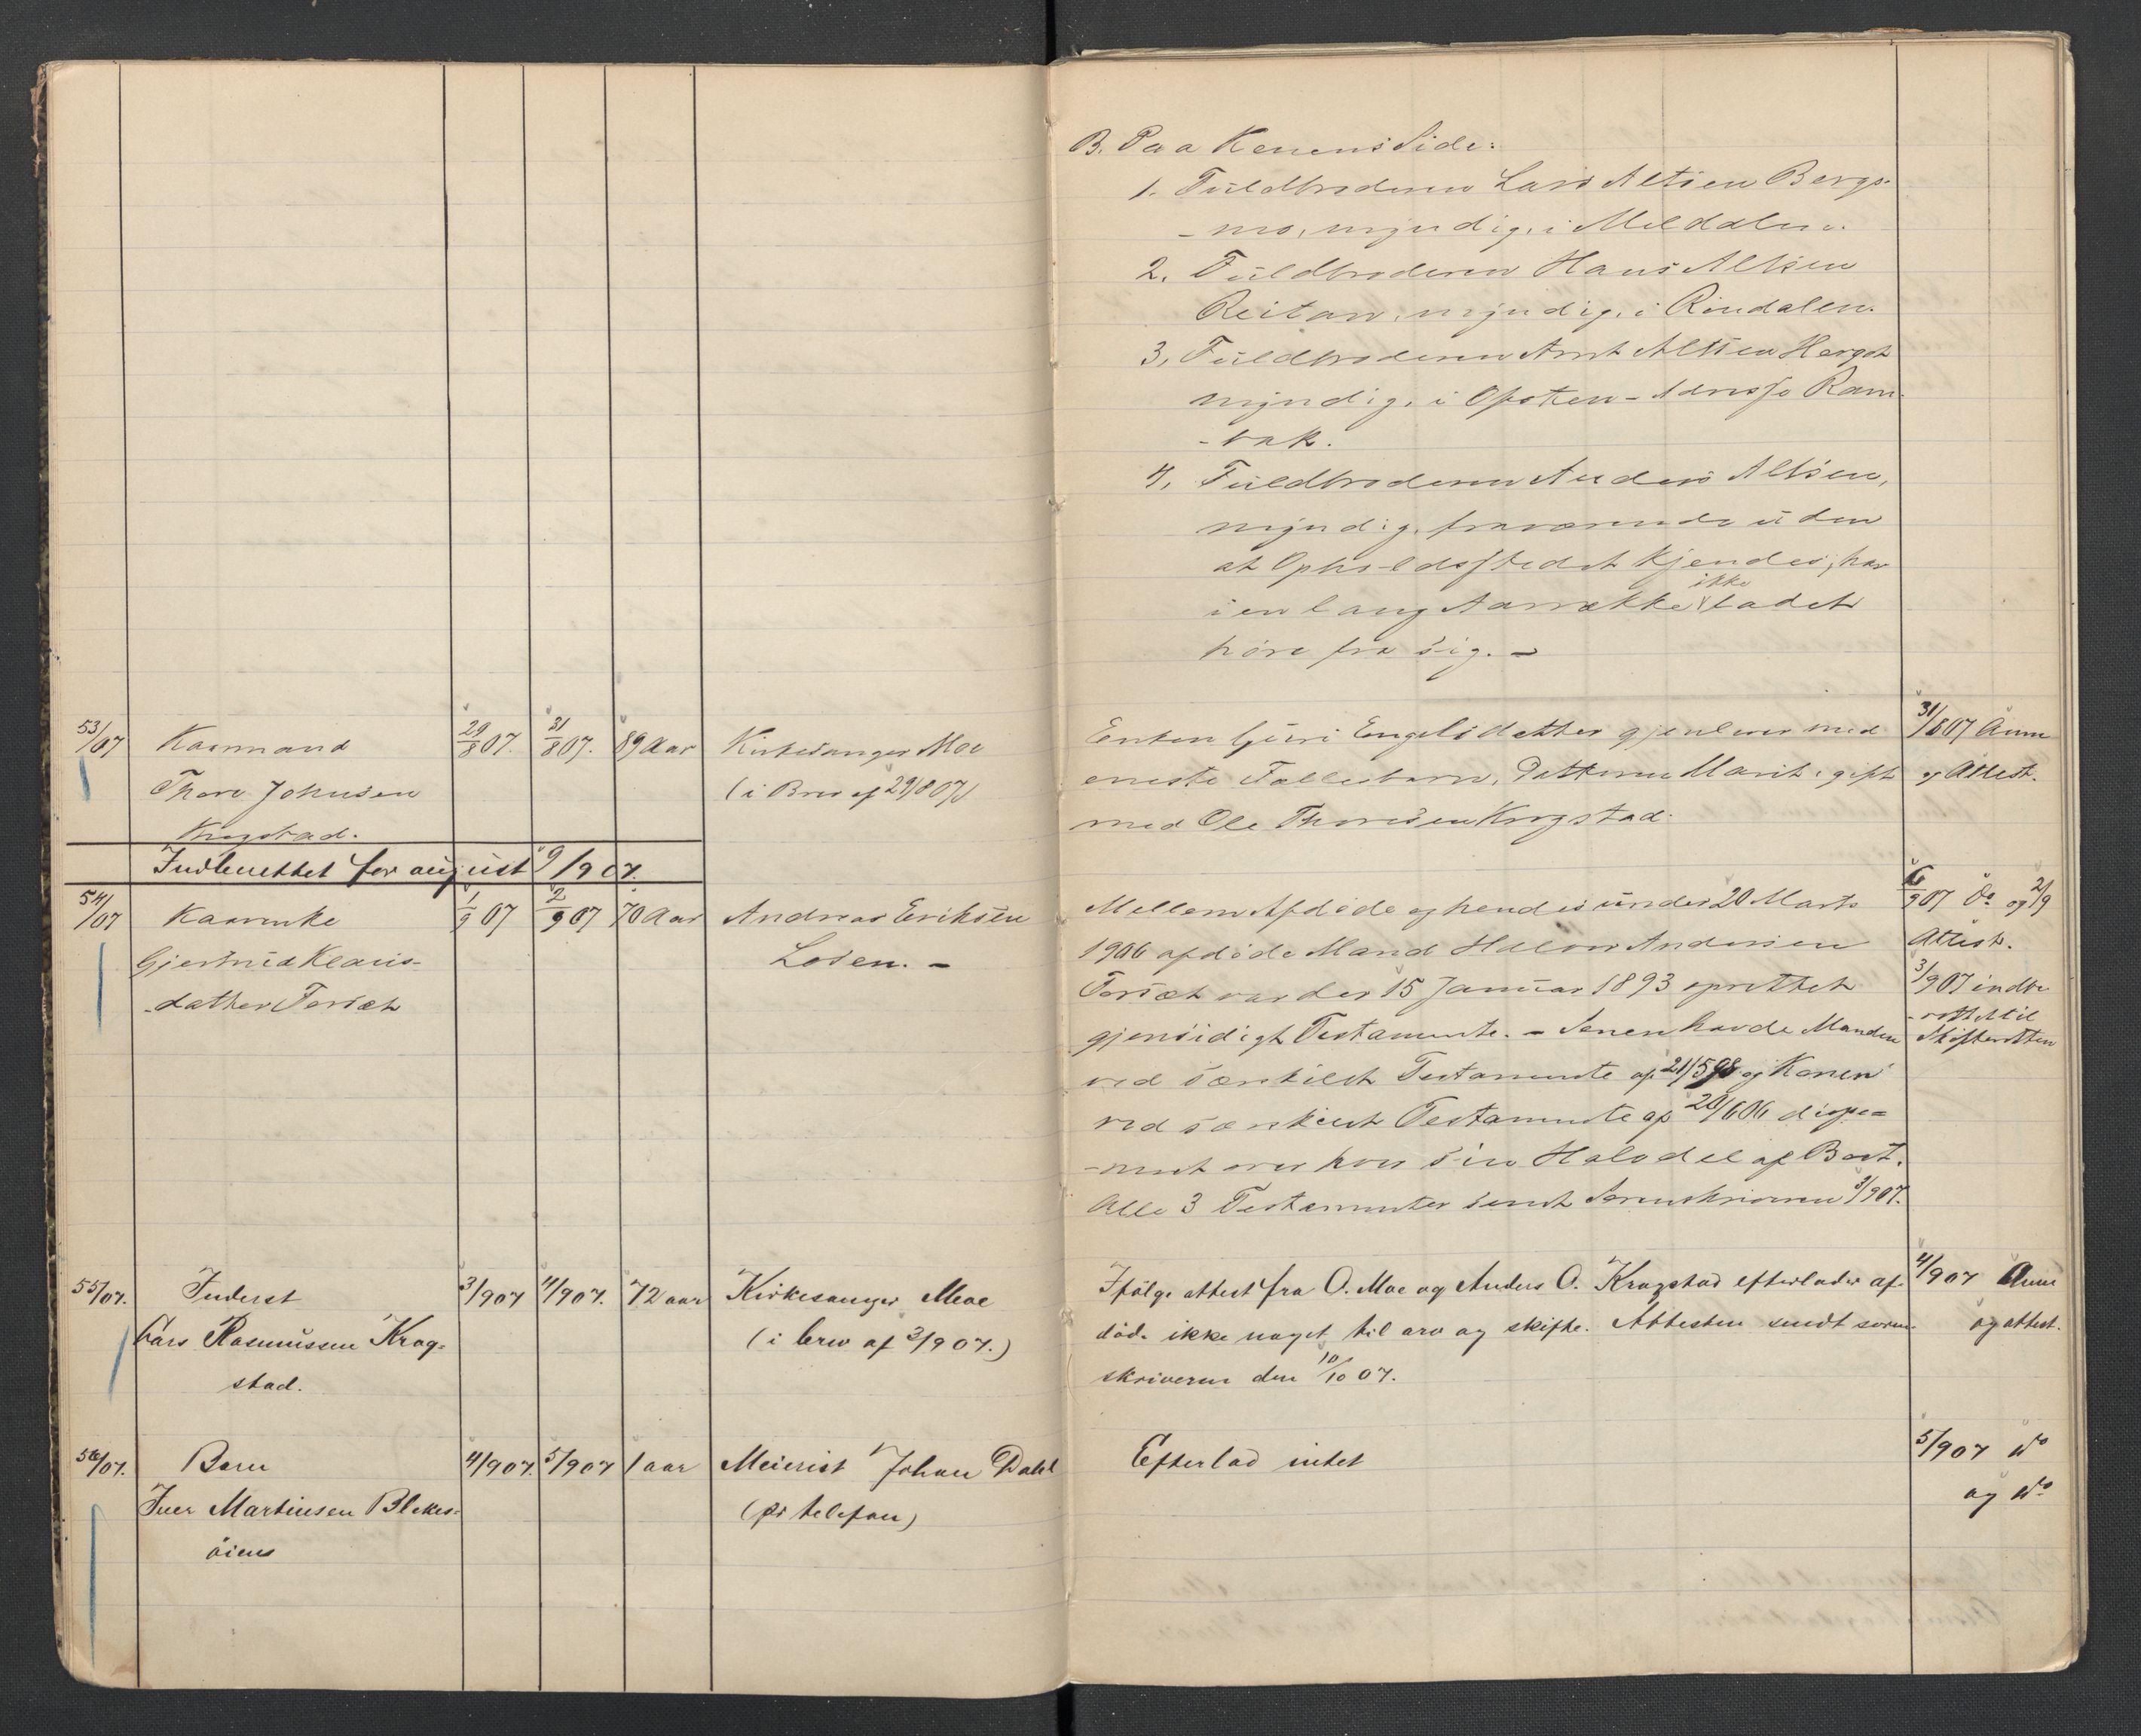 B. Paa Konens Side:
1. Fuldbroderen Lars Altsen Bergs-
-mo, myndig, i Meldalen.
2. Fuldbroderen Hans Altsen
Reitan, myndig, i Rindalen.
3, Fuldbroderen Arnt Altsen
myndig, i Opsten - Adresse Ram-
-vik.
4, Fuldbroderen Anders Altsen,
myndig, fraværende uden
at Opholdsstedet kjendes, har
i en lang Aarrække ikke ladet
høre fra sig. -
53/07 Kaarmand 29/8 07. 31/8 07. 89 Aar Kirkesanger Moe
Thore Johnsen (i Brev af 29/8 07)
Krogstad.
Enken Guri Engelsdatter gjenlever med 31/8 07 Anm
eneste Fællesbarn, Datteren Marit, gift og Attest.
med Ole Thoresen Krogstad.
Indberettet for august 9/907.
54/07 Kaarenke 1/9 07 2/9 07 70 Aar Andreas Eriksen
Gjertrud Klaus- Losen. -
-datter Forsæt
Mellem Afdøde og hendes under 20 Marts 6/9 07 Do og 2/9
1906 afdøde Mand Halvor Andersen Attest.
Forsæt var der 15 Januar 1893 oprettet 3/907 indbe
gjensidigt Testamente. - Senere havde Manden -rettet til
ved særskilt Testamente af 21/5 98 og Konen Skifteretten
ved særskilt Testamente af 20/6 06 dispo-
-neret over hver sin Halvdel af Boet.
Alle 3 Testamenter sendt Sorenskriveren 3/907.
55/07. Inderst 3/907 4/907. 72 aar Kirkesanger Moe
Lars Rasmussen Krog- (i brev af 3/907.)
stad.
Ifølge attest fra O. Moe og Anders O. Krogstad efterlader af- 4/907 Anm
døde ikke noget til arv og skifte. Attesten sendt soren- og attest.
skriveren den 10/10 07.
56/07. Barn 4/907. 5/907 1 aar Meierist Johan Dahl
Iver Martinsen Blekes- (pr telefon)
øiens
Efterlod intet 5/907 do
og do